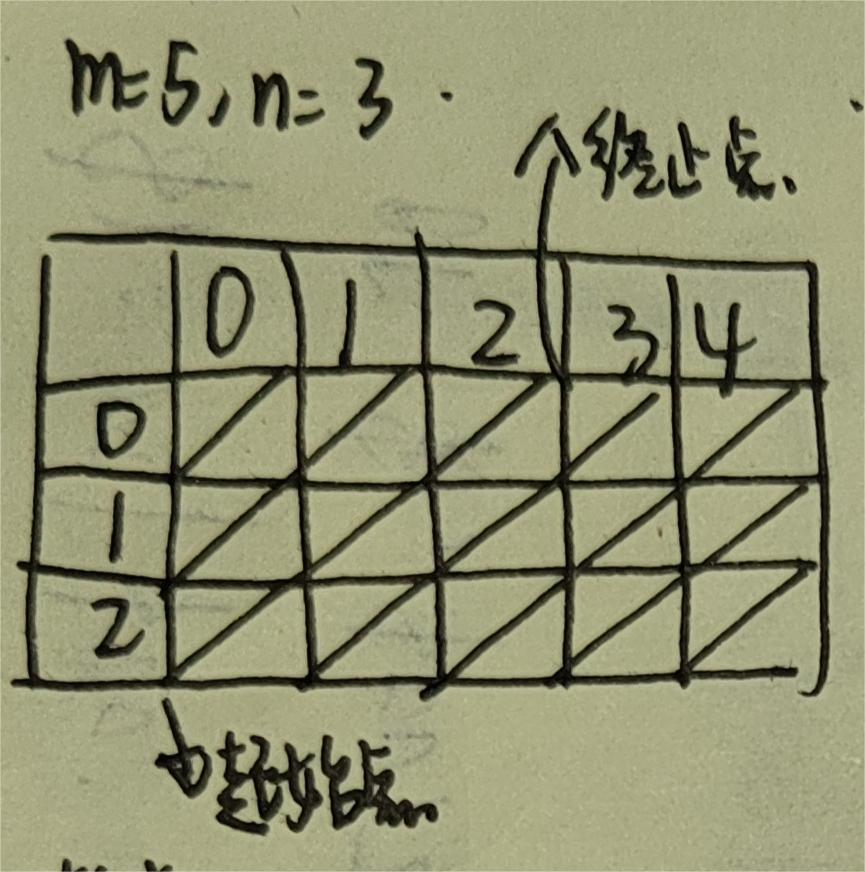 m=5, n=3.
终止点.
0 1 2 3 4
0
1
2
起始点.